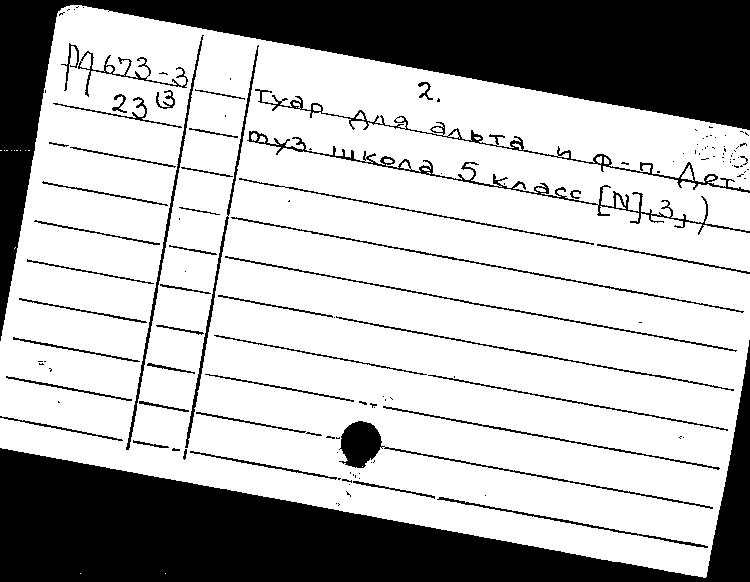 2.
М 673-3
23 (3
Туар для альта и ф-п. Дет.
муз. школа 5 класс [N] [3])